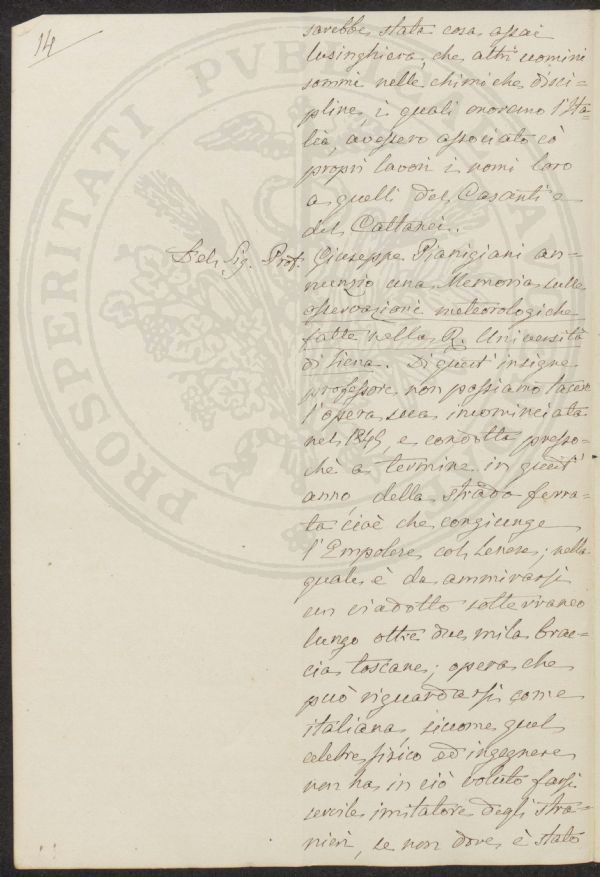 14
sarebbe stata cosa assai
lusinghiera, che altri uomini
sommi nelle chimiche disci=
pline, i quali onorano l'Ita=
lia, avessero associato cò
propri lavori i nomi loro
a quelli del Casanti e
del Cattanei.
Del Sig. Prof. Giuseppe Pianigiani an=
nunzio una Memoria sulle
osservazioni meteorologiche
fatte nella R. Università
di Siena. Di quest' insigne
professore non possiamo tacere
l'opera sua incominciata
nel 1845, e condotta presso=
chè a termine in quest'
anno della strada ferra=
ta cioè che congiunge
l'Empolese col Senese; nella
quale è da ammirarsi
un viadotto sotterraneo
lungo oltre due mila brac=
cia toscane; opera che
può riguardarsi come
italiana, siccome quel
celebre fisico ed ingegnere
non ha in ciò voluto farsi
servile imitatore degli stra=
nieri, se non dove è stato
PROSPERITATI PVBLICAE AVGENDAE